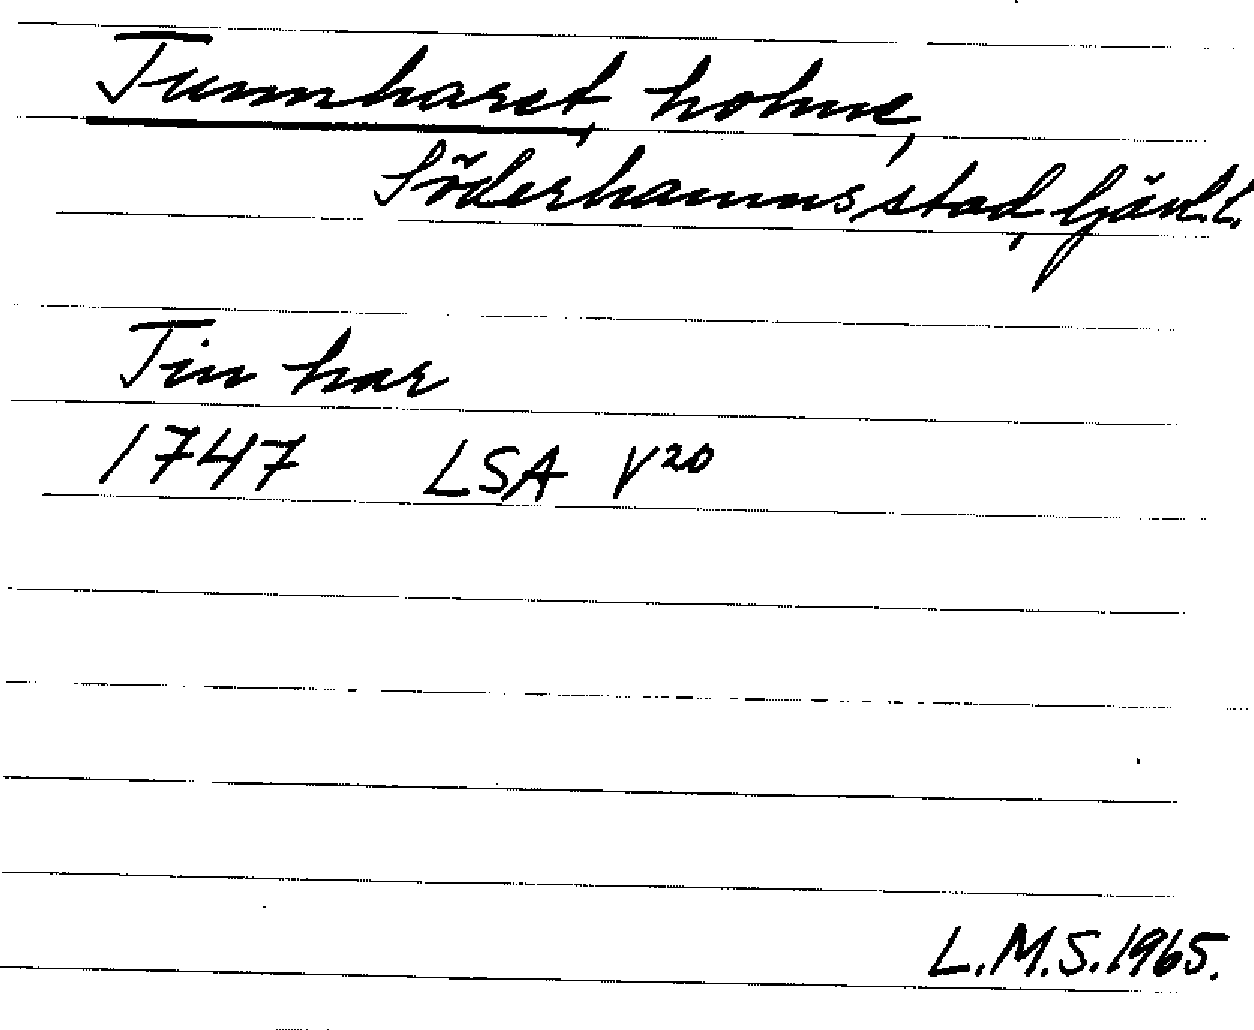 Tunnharet, holme,
Söderhamns stad, Gävl.l.
Tin har
1747 LSA V20
L.M.S. 1965.